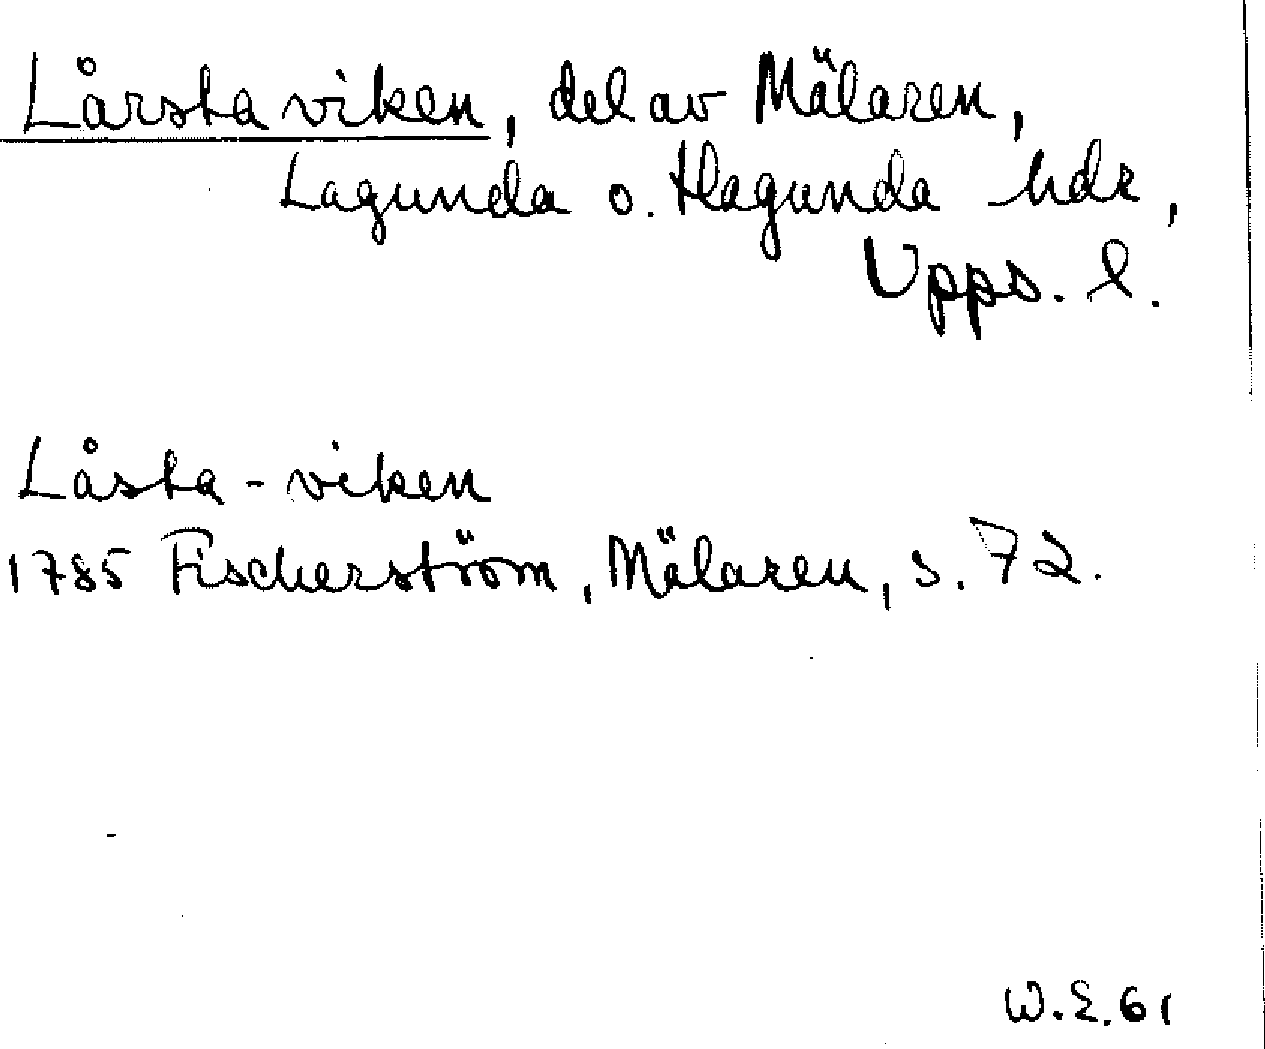 Lårstaviken, del av Mälaren,
Lagunda o. Hagunda hdr,
Upps. l.
Låsta-viken
1785 Fischerström, Mälaren, s. 72.
W.E.61